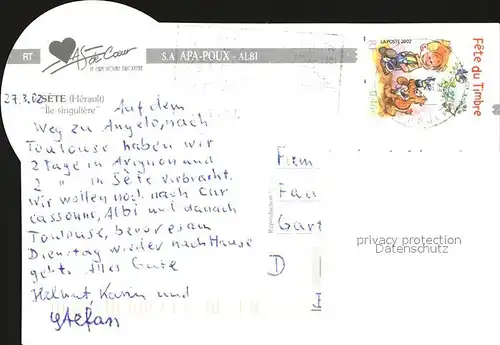 RT
AS de Cœur
S.A APA-POUX - ALBI
LA POSTE 2002
Fête du Timbre
27.3.02
SÈTE (Hérault)
"Île singulière"
Auf dem
Weg zu Angelo, nach
Toulouse haben wir
2 Tage in Avignon und
2 " in Sète verbracht.
Wir wollen noch nach Car
cassonne, Albi und danach
Toulouse, bevor es am
Dienstag wieder nach Hause
geht. Alles Gute
Helmut, Karin und
Stefan
Firm
Fam
Gart
D
Reproduction
privacy protection
Datenschutz